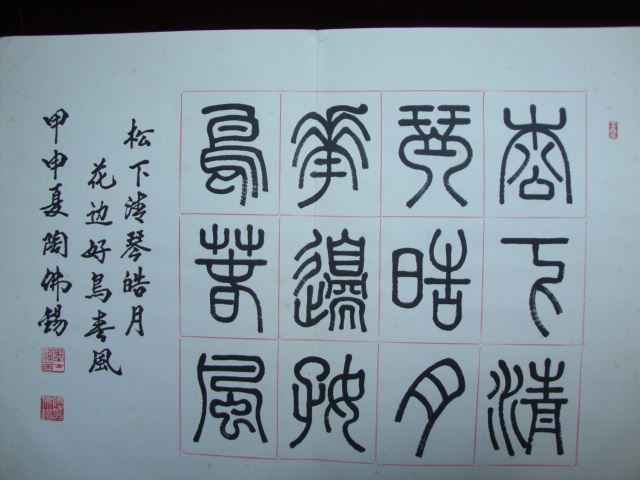 松下清
琴晧月
華邊好
鳥春風
松下清琴皓月
花边好鳥春風
甲申夏陶佛锡